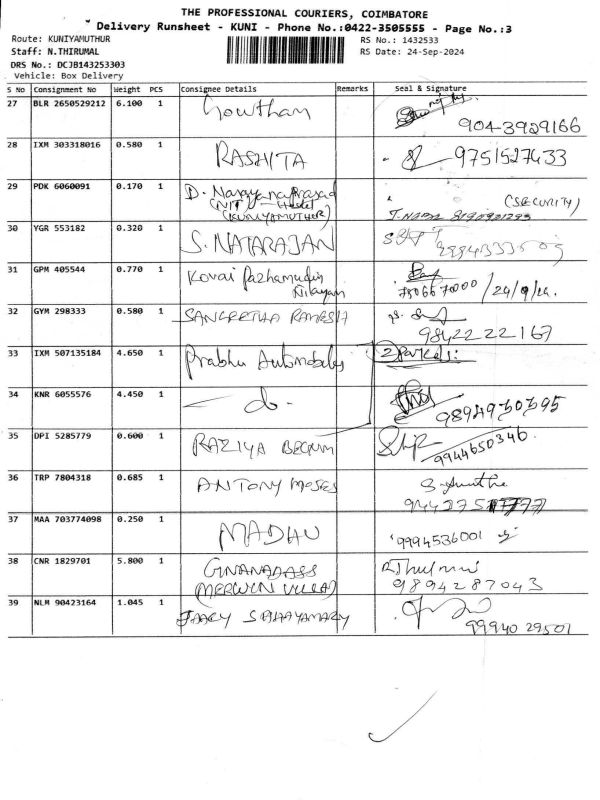 THE PROFESSIONAL COURIERS, COIMBATORE
Delivery Runsheet - KUNI - Phone No.:0422-3505555 - Page No.:3
Route: KUNIYAMUTHUR
RS No.: 1432533
Staff: N.THIRUMAL
RS Date: 24-Sep-2024
DRS No.: DCJB143253303
Vehicle: Box Delivery
S No Consignment No Weight PCS Consignee Details Remarks Seal & Signature
27 BLR 2650529212 6.100 1 Gowtham
9043929166
28 IXM 303318016 0.580 1 RASHITA 9751527433
29 PDK 6060091 0.170 1 D. Narayanaprasad
(NIT) Hostel (SECURITY)
(KUNIYAMUTHUR)
30 YGR 553182 0.320 1 S. NATARAJAN
31 GPM 405544 0.770 1 Kovai Pazhamudir
Nilayam
32 GYM 298333 0.580 1 SANGEETHA RAMESH
9842222167
33 IXM 507135184 4.650 1 Prabhu Automobiles 2 Parcels:
34 KNR 6055576 4.450 1 - do -
9894930395
35 DPI 5285779 0.600 1 RAZIYA BEGUM
9944650346.
36 TRP 7804318 0.685 1 ANTONY MOSES
37 MAA 703774098 0.250 1 MADHU 9994536001
38 CNR 1829701 5.800 1 GNANADASS
(MERWIN VILLA) 9894287043
39 NLM 90423164 1.045 1
9994029501